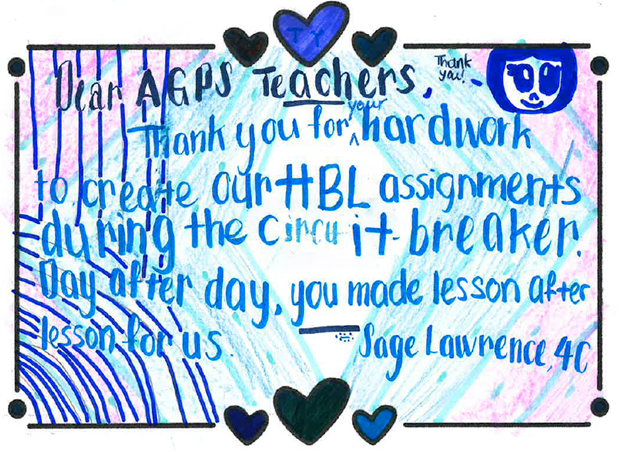 TY
Dear AGPS Teachers,
Thank
you!
Thank you for your hardwork
to create our HBL assignments
during the circuit breaker.
Day after day, you made lesson after
lesson for us.
Sage Lawrence, 4C